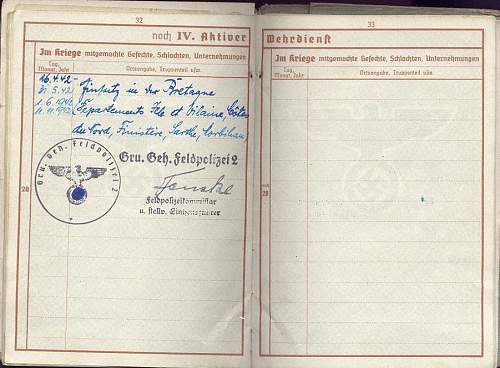 32
noch IV. Aktiver
Im Kriege mitgemachte Gefechte, Schlachten, Unternehmungen
Tag, Monat, Jahr
Ortsangabe, Truppenteil usw.
16.4.42-
31.5.42
Einsatz in der Bretagne
1.6.1942
11.11.1942
(Departements Ille et Vilaine, Côtes
du Nord, Finistère, Sarthe, Morbihan)
Gru. Geh. Feldpolizei 2
Gru. Geh. Feldpolizei 2
Feldpolizeikommissar
u. stellv. Einheitsführer
28
33
Wehrdienst
Im Kriege mitgemachte Gefechte, Schlachten, Unternehmungen
Tag, Monat, Jahr
Ortsangabe, Truppenteil usw.
noch 28